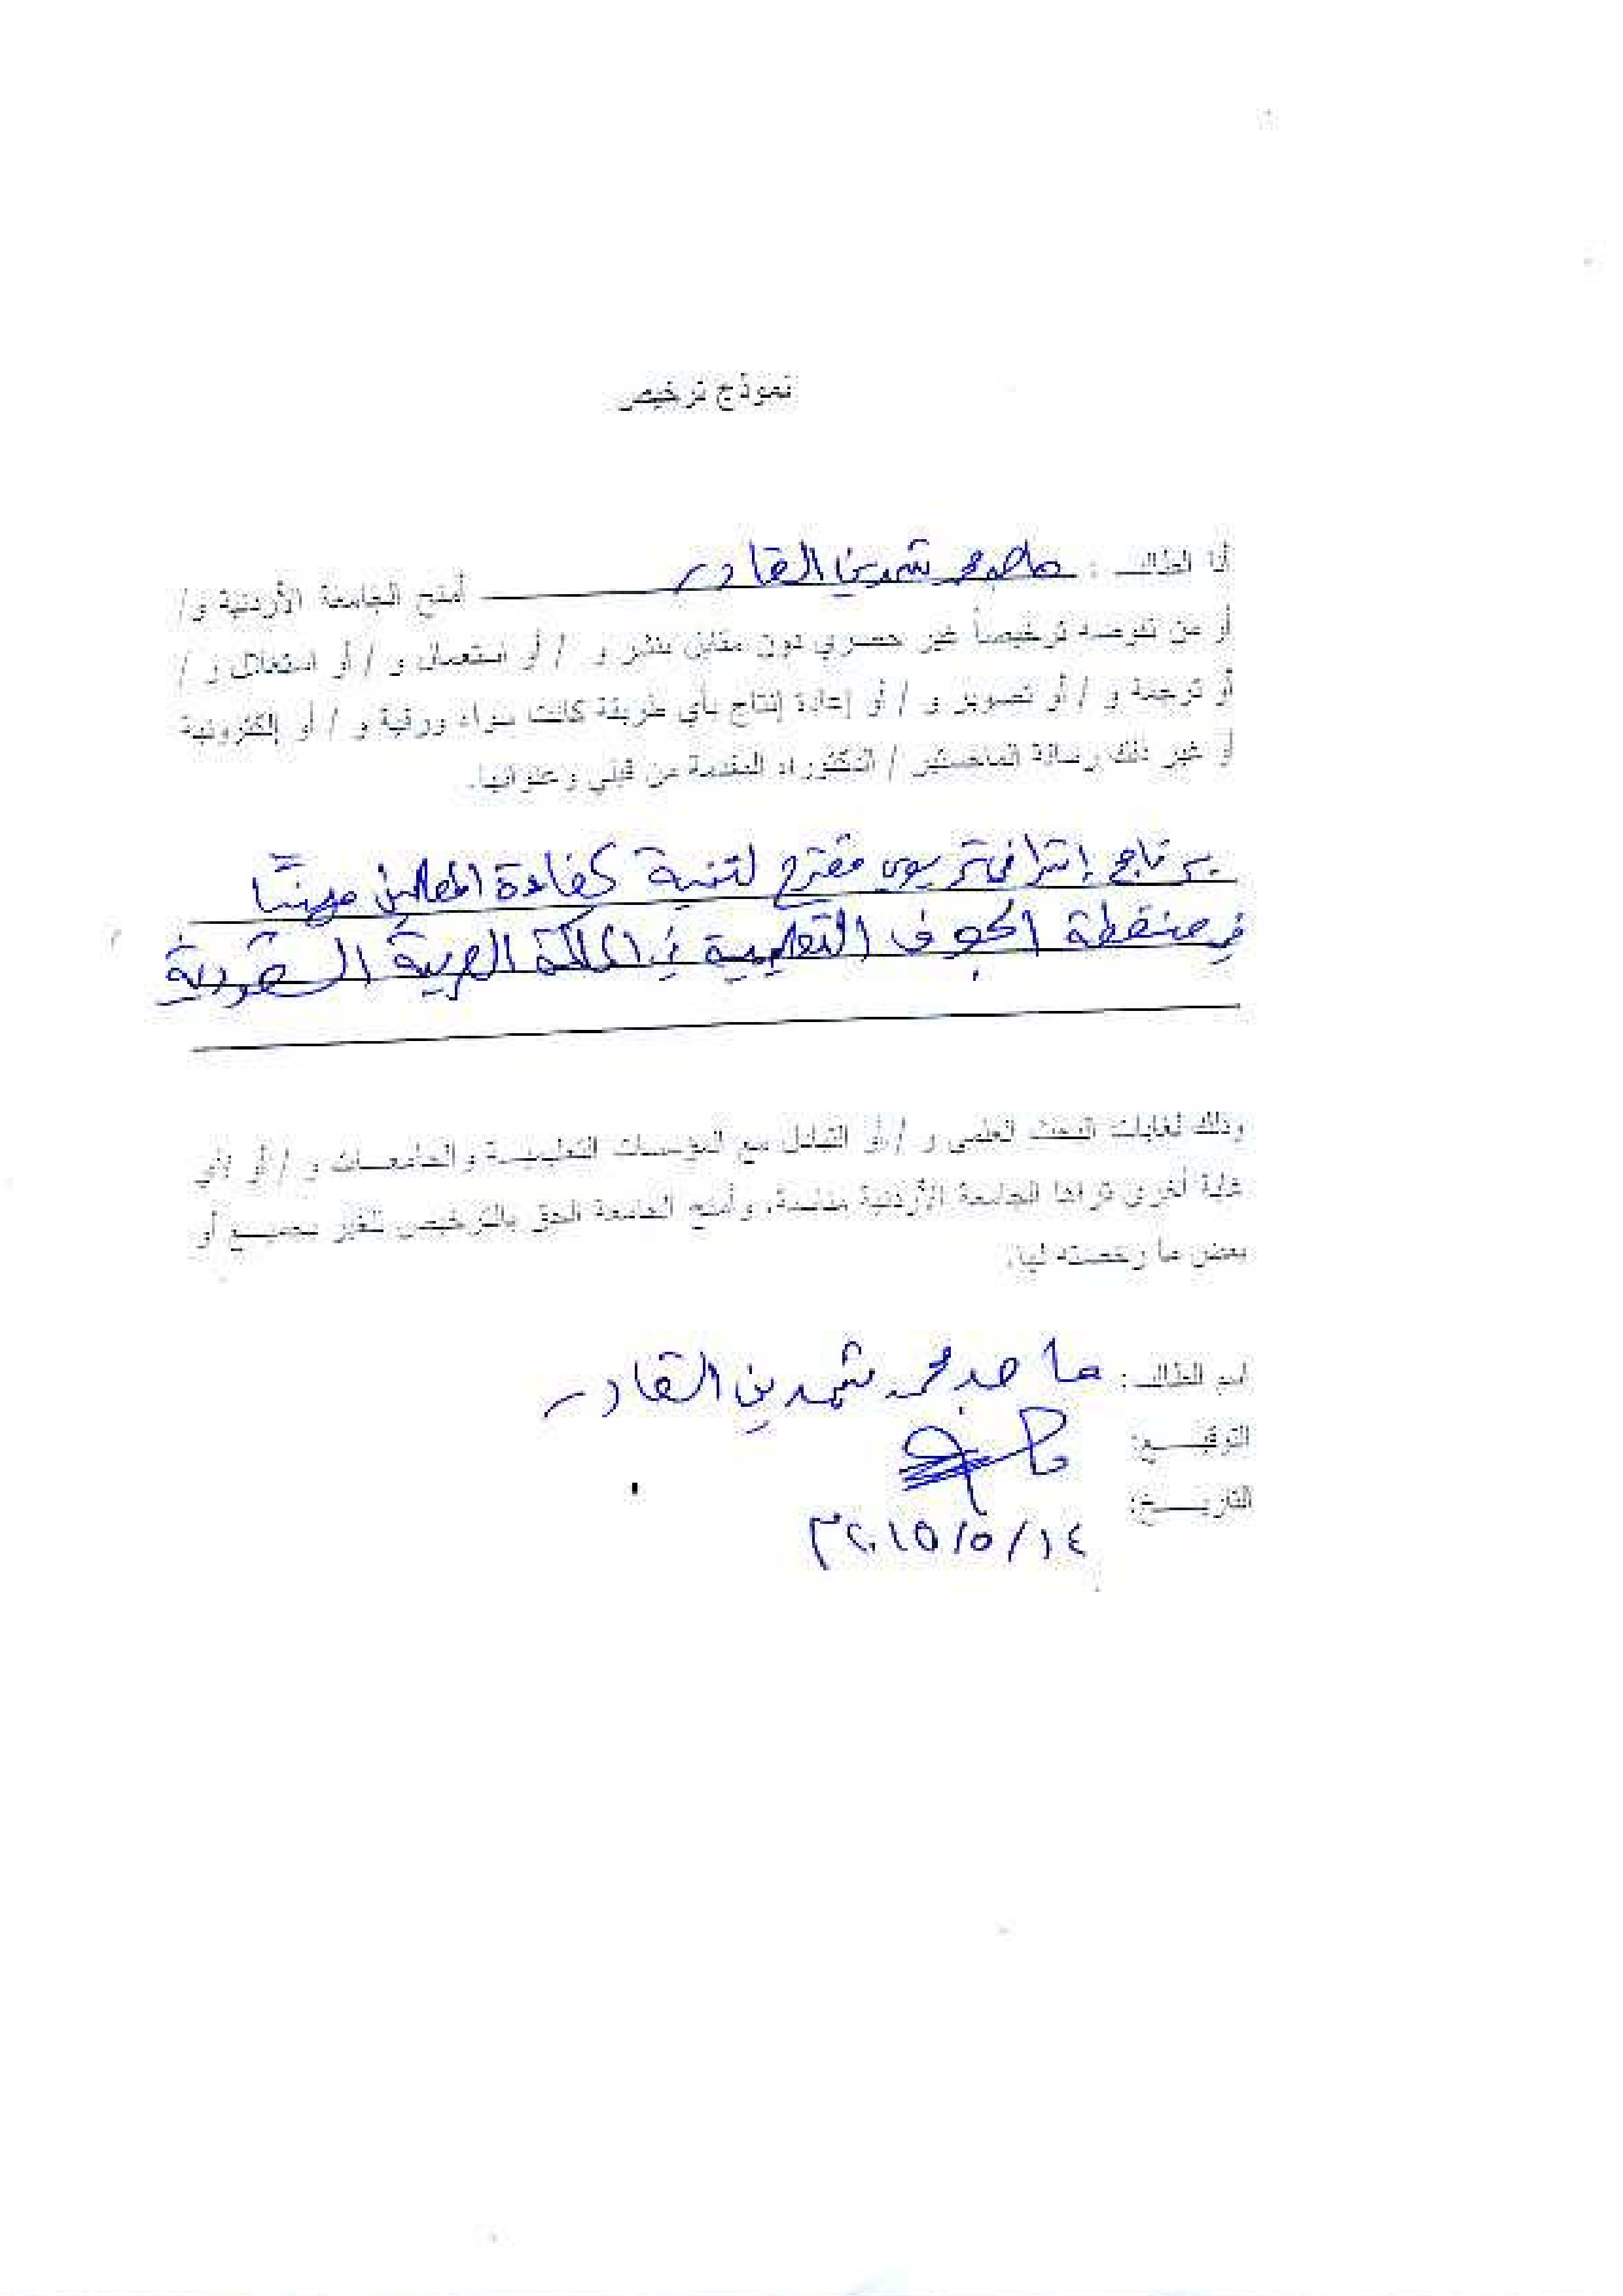 نموذج ترخيص
أنا الطالب : ماجد محمد شمدين القادر أمنح الجامعة الأردنية و/
أو من تفوضه ترخيصاً غير حصري دون مقابل بنشر و / أو استعمال و / أو استغلال و /
أو ترجمة و / أو تصوير و / أو إعادة إنتاج بأي طريقة كانت سواء ورقية و / أو إلكترونية
أو غير ذلك رسالة الماجستير / الدكتوراه المقدمة من قبلي وعنوانها.
برنامج إشرافي تربوي مقترح لتنمية كفاءة المعلمين مهنيًّا
في منطقة الجوف التعليمية في المملكة العربية السعودية
وذلك لغايات البحث العلمي و / أو التبادل مع المؤسسات التعليمية والجامعات و / أو لأي
غاية أخرى تراها الجامعة الأردنية مناسبة، وأمنح الجامعة الحق بالترخيص للغير بجميع أو
بعض ما رخصته لها.
اسم الطالب : ماجد محمد شمدين القادر
التوقيع:
التاريخ:
١٤/٥/٢٠١٥م